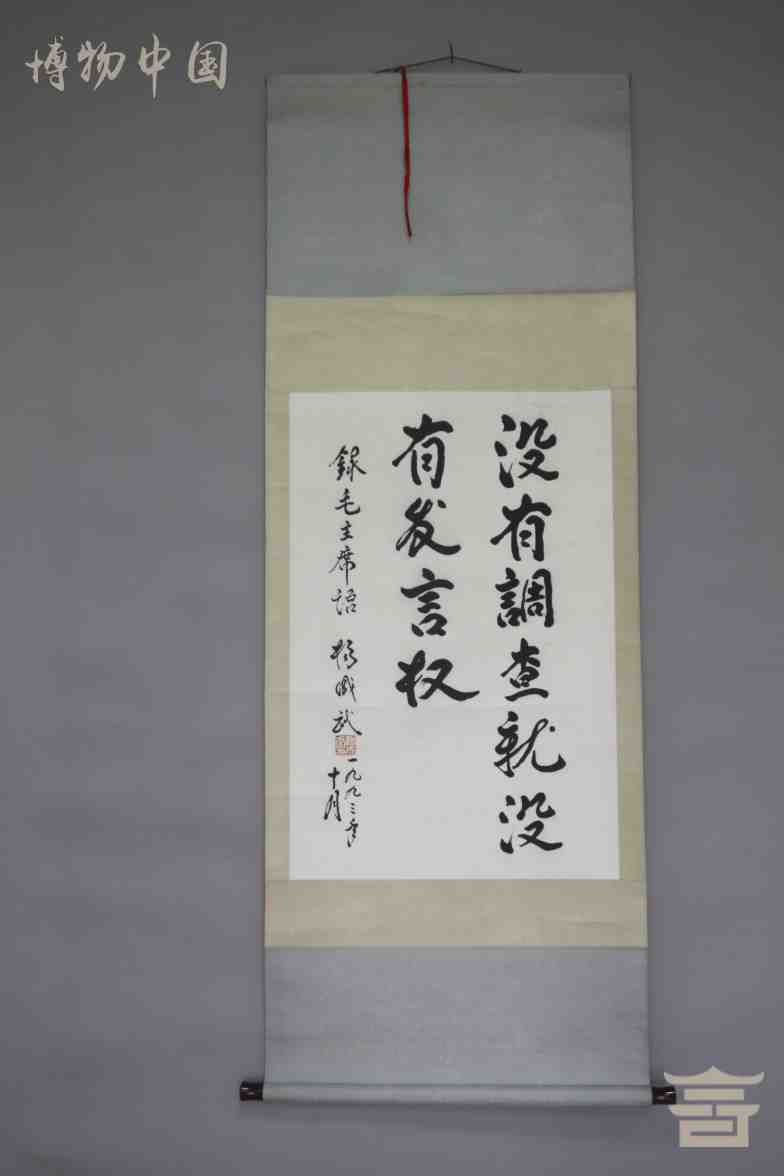 博物中国
没有調查就没
有发言权
録毛主席语 杨成武
一九九三年
十月